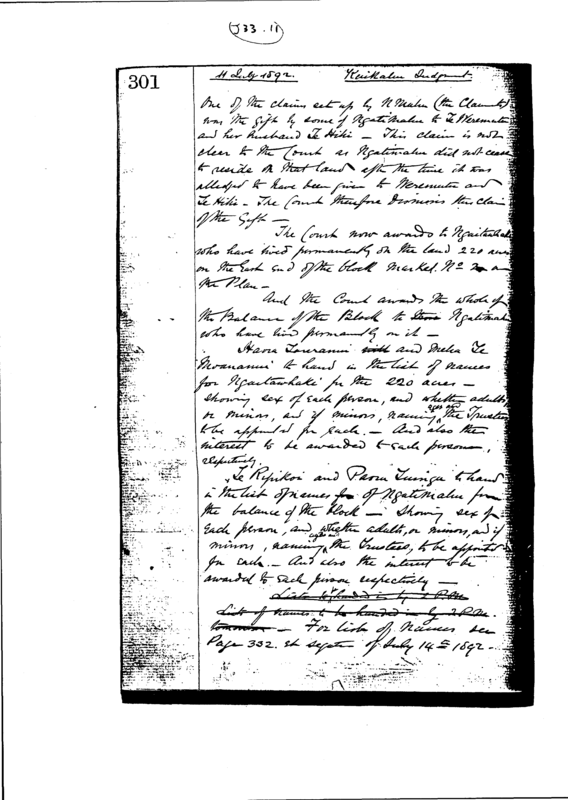 (J33.11)
301
11 July 1892. Kuikahu Judgment
One of the claims set up by N Mahu (the Claimants)
was the gift by some of Ngatimahu to Te Weremutu
and her husband Te Hihi — This claim is not
clear to the Court as Ngatimahu did not cease
to reside on that land after the time it was
alledged to have been given to Weremutu and
Te Hihi — The Court therefore dismisses this claim
of the Gift —
The Court now awards to
who have lived permanently on the land 220 acres
on the East end of the block marked No on
the Plan —
And the Court awards the whole of
the Balance of the Block to Ngatimahu
who have lived permanently on it —
Haora and Meha Te
to hand in the list of names
for for the 220 acres —
showing sex of each person, and whether adults,
or minors, and if minors, naming ages and the Trustees
to be appointed for each. — And also the
interest to be awarded to each person,
respectively.
Te Ropikoi and Paora to hand
in the list of names of Ngatimahu for
the balance of the block — showing sex of
each person, and whether adults, or minors, and if
minors, naming ages and the Trustees, to be appointed
for each. — And also the interest to be
awarded to each person respectively —
Lists to be handed in by 2 P.M.
List of names to be handed in by 2 P.M.
tomorrow — For lists of names see
Page 332. et seqten of July 14th 1892 —